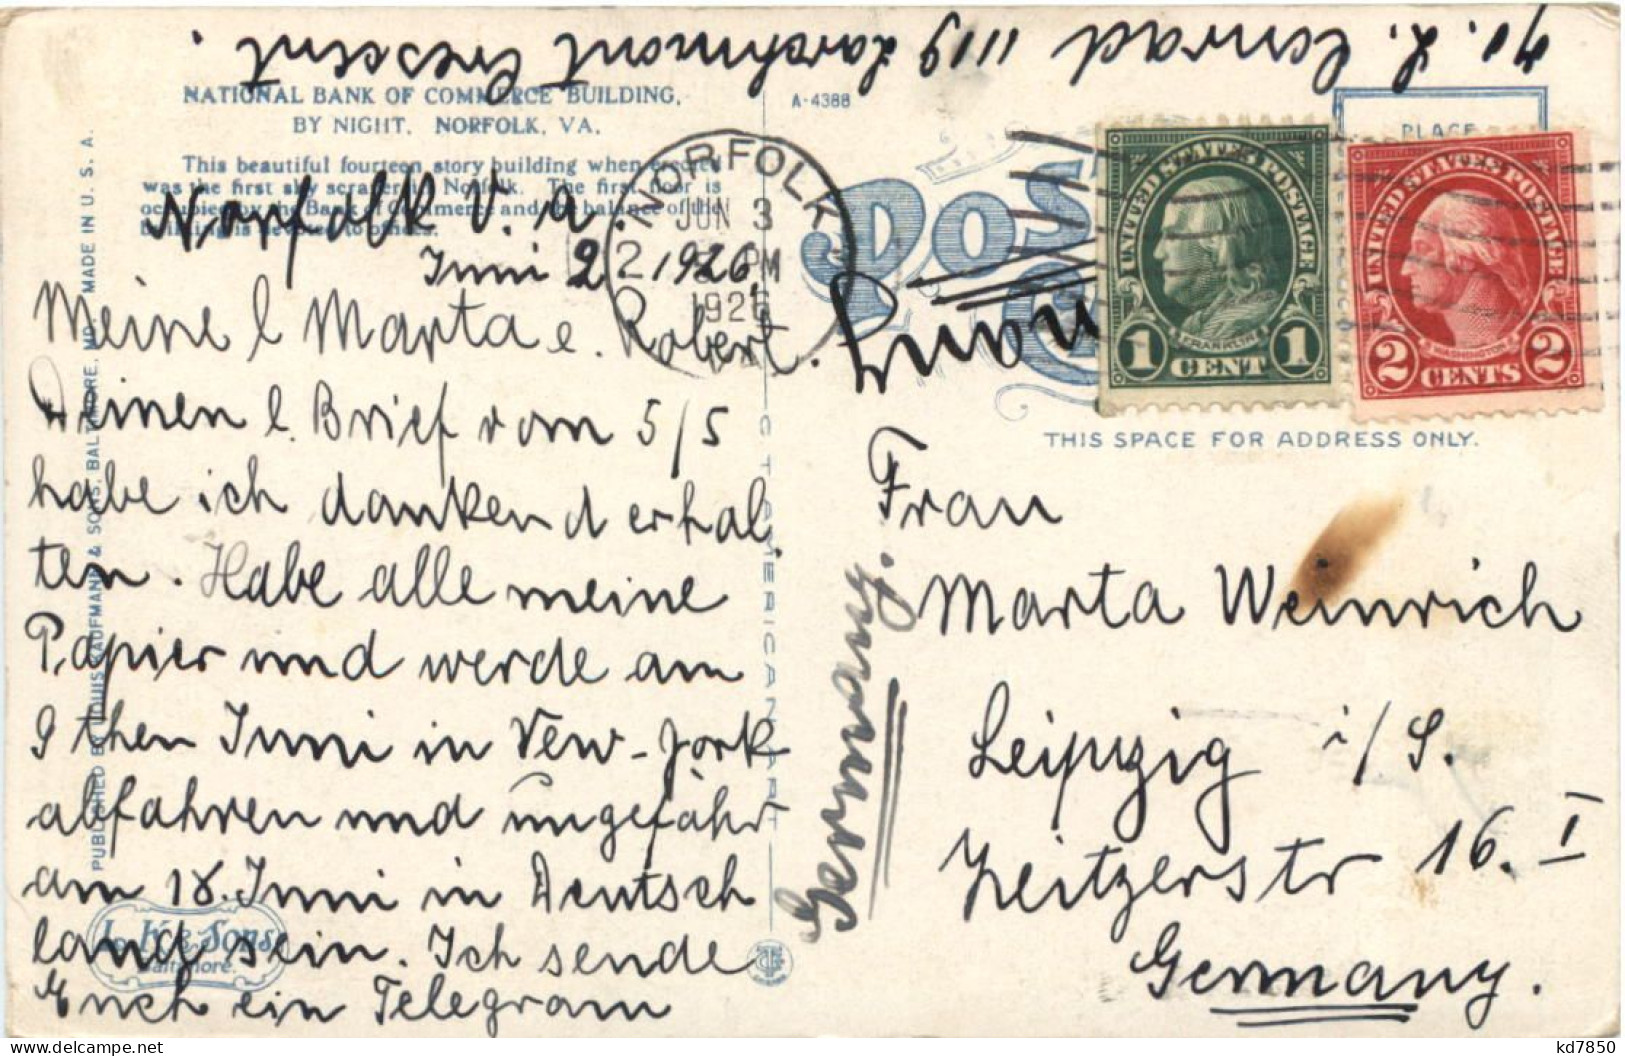 % L. Conrad 1119 Larchmont Crescent.
NATIONAL BANK OF COMMERCE BUILDING,
BY NIGHT. NORFOLK, VA.
This beautiful fourteen story building when erected
was the first sky scraper in Norfolk. The first floor is
occupied by the Bank of Commerce and the balance of the
building is devoted to offices.
A-4388
Norfolk V.a.
Juni 2 1926,
Meine l Marta e. Robert.
Deinen l. Brief vom 5/5
habe ich dankend erhal
ten. Habe alle meine
Papier und werde am
9 then Juni in New-Jork
abfahren und ungefähr
am 18. Juni in Deutsch
land sein. Ich sende
Euch ein Telegram
PUBLISHED BY LOUIS KAUFMANN & SONS, BALTIMORE, MD. MADE IN U. S. A.
L. K & Sons
Baltimore.
C T AMERICAN ART
NORFOLK
JUN 3
2 PM
1926
PLACE
UNITED STATES POSTAGE
FRANKLIN
1 CENT 1
UNITED STATES POSTAGE
WASHINGTON
2 CENTS 2
THIS SPACE FOR ADDRESS ONLY.
Germany.
Frau
Marta Weinrich
Leipzig i/S.
Zeitzerstr 16. I
Germany.
kd7850